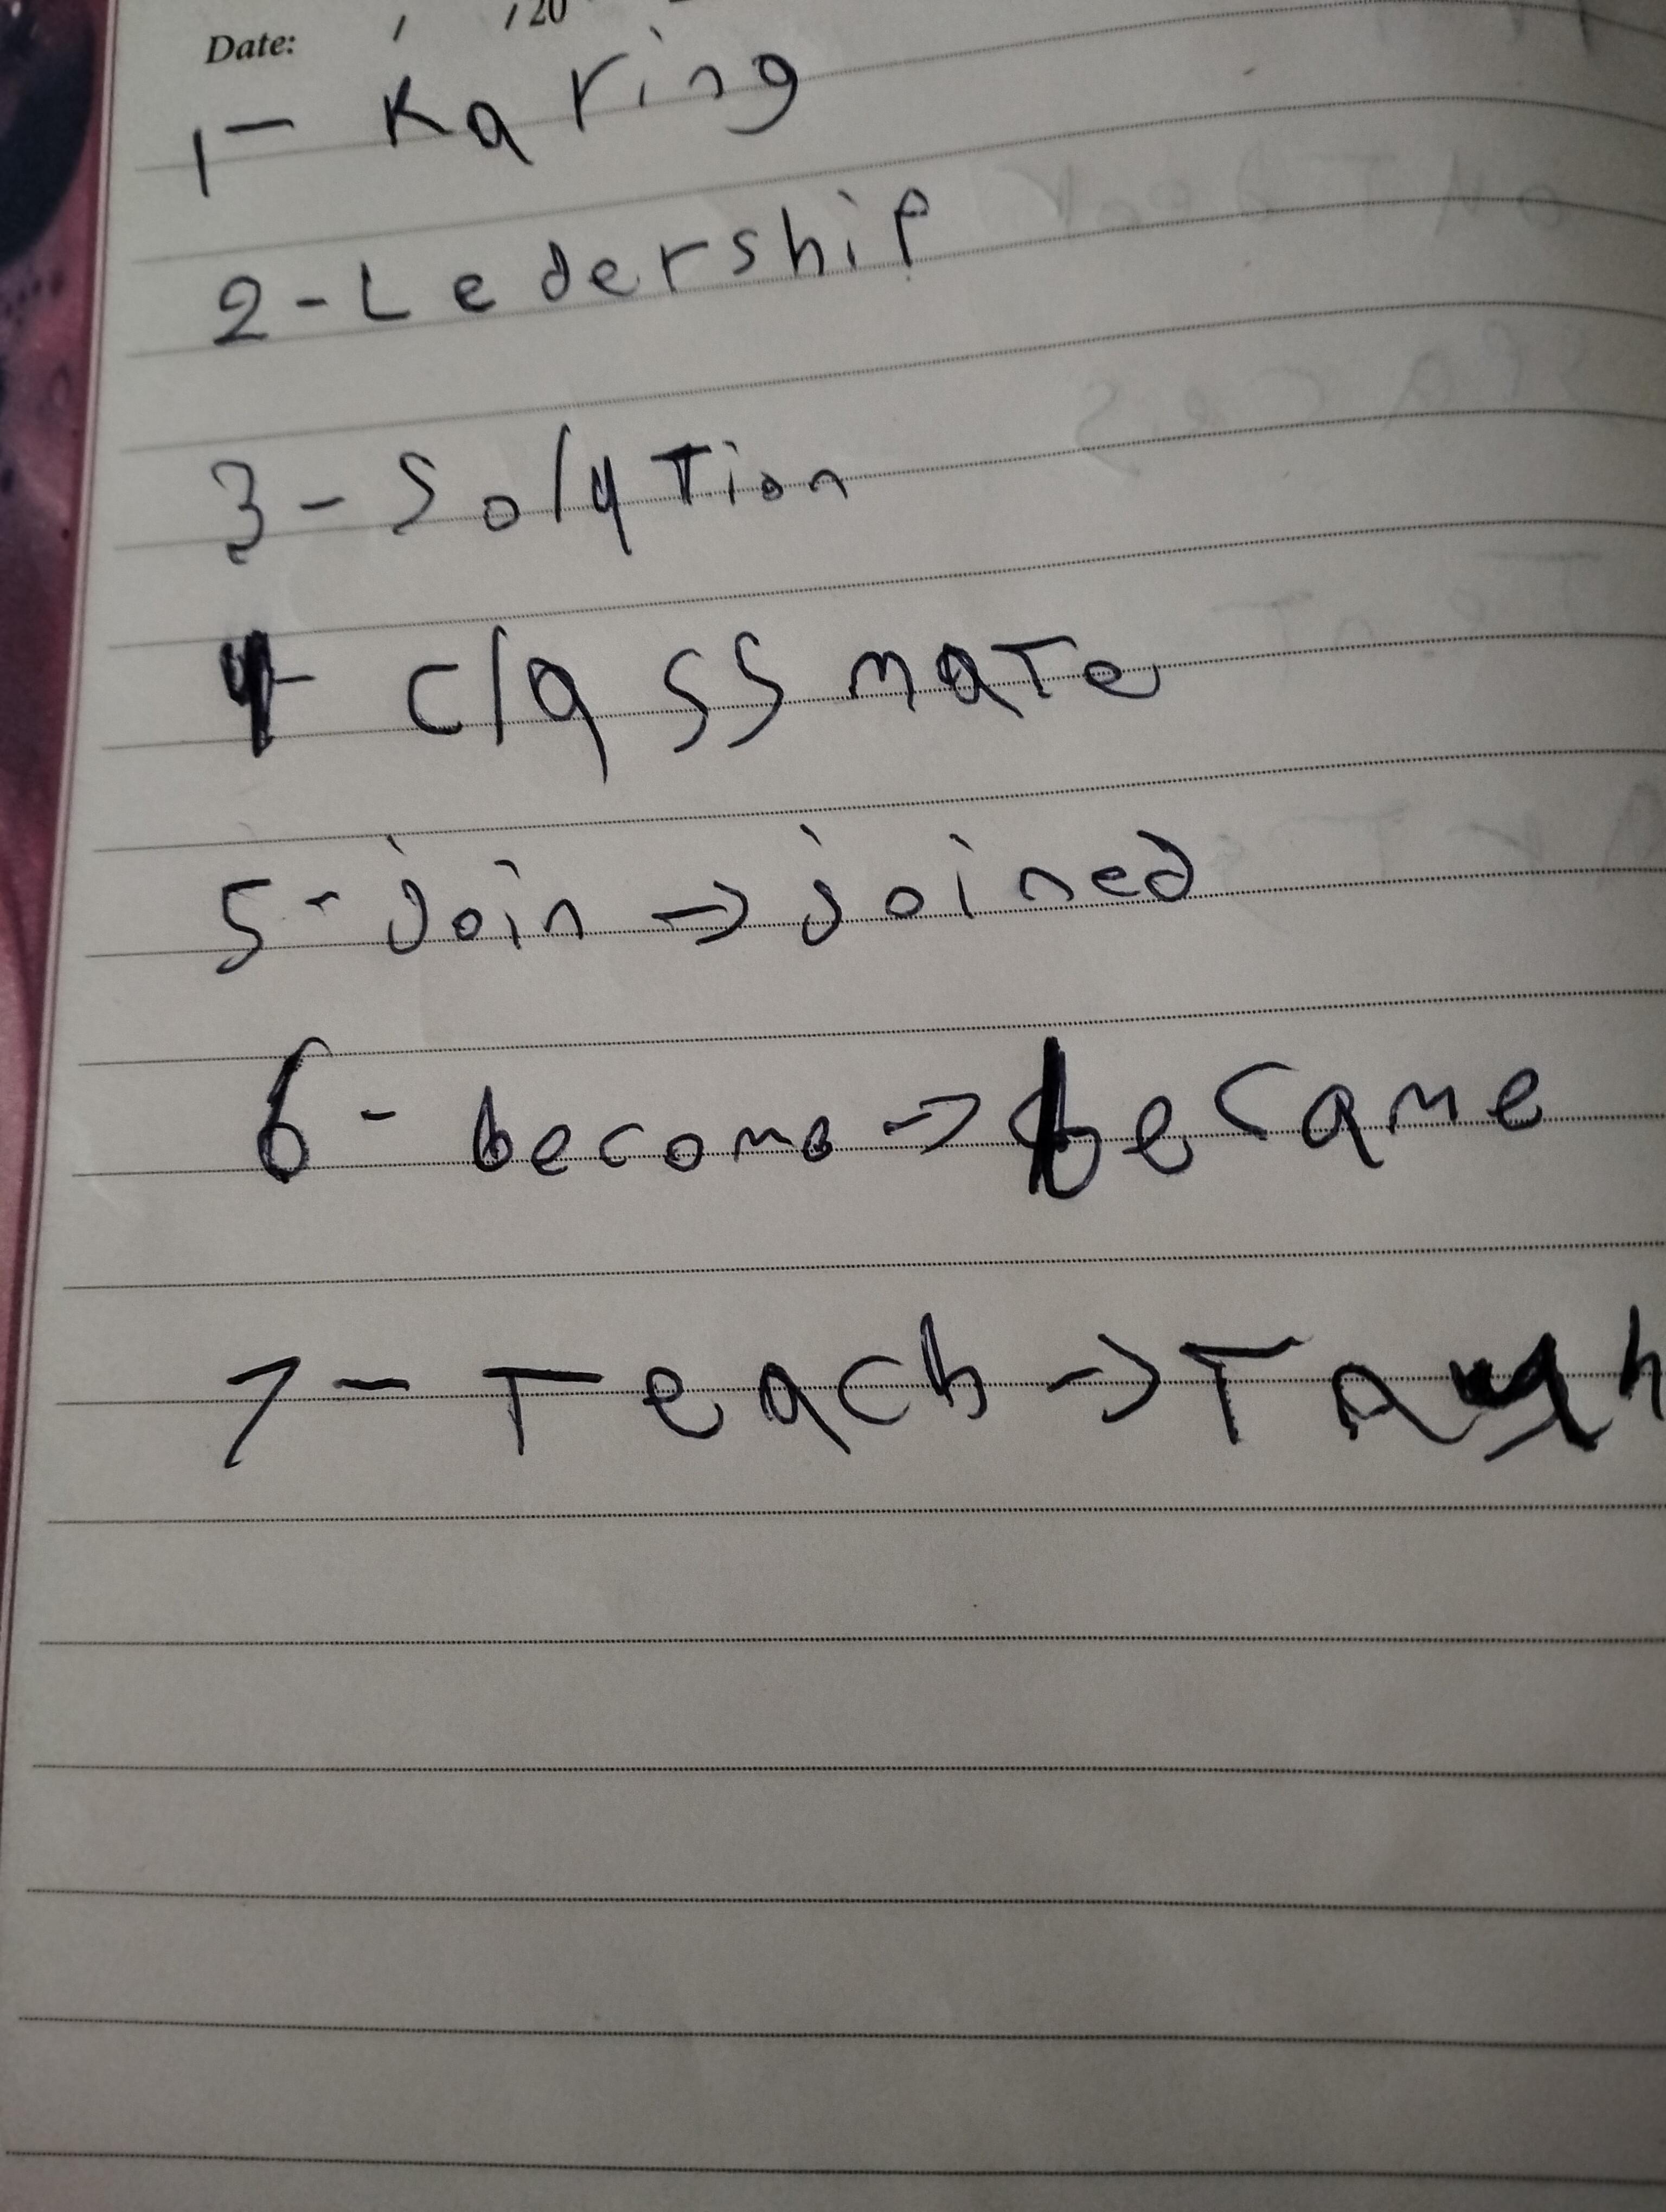 Date: / /20
1- Karing
2- Ledership
3- Solution
4- classmate
5- join → joined
6- become → became
7- Teach →